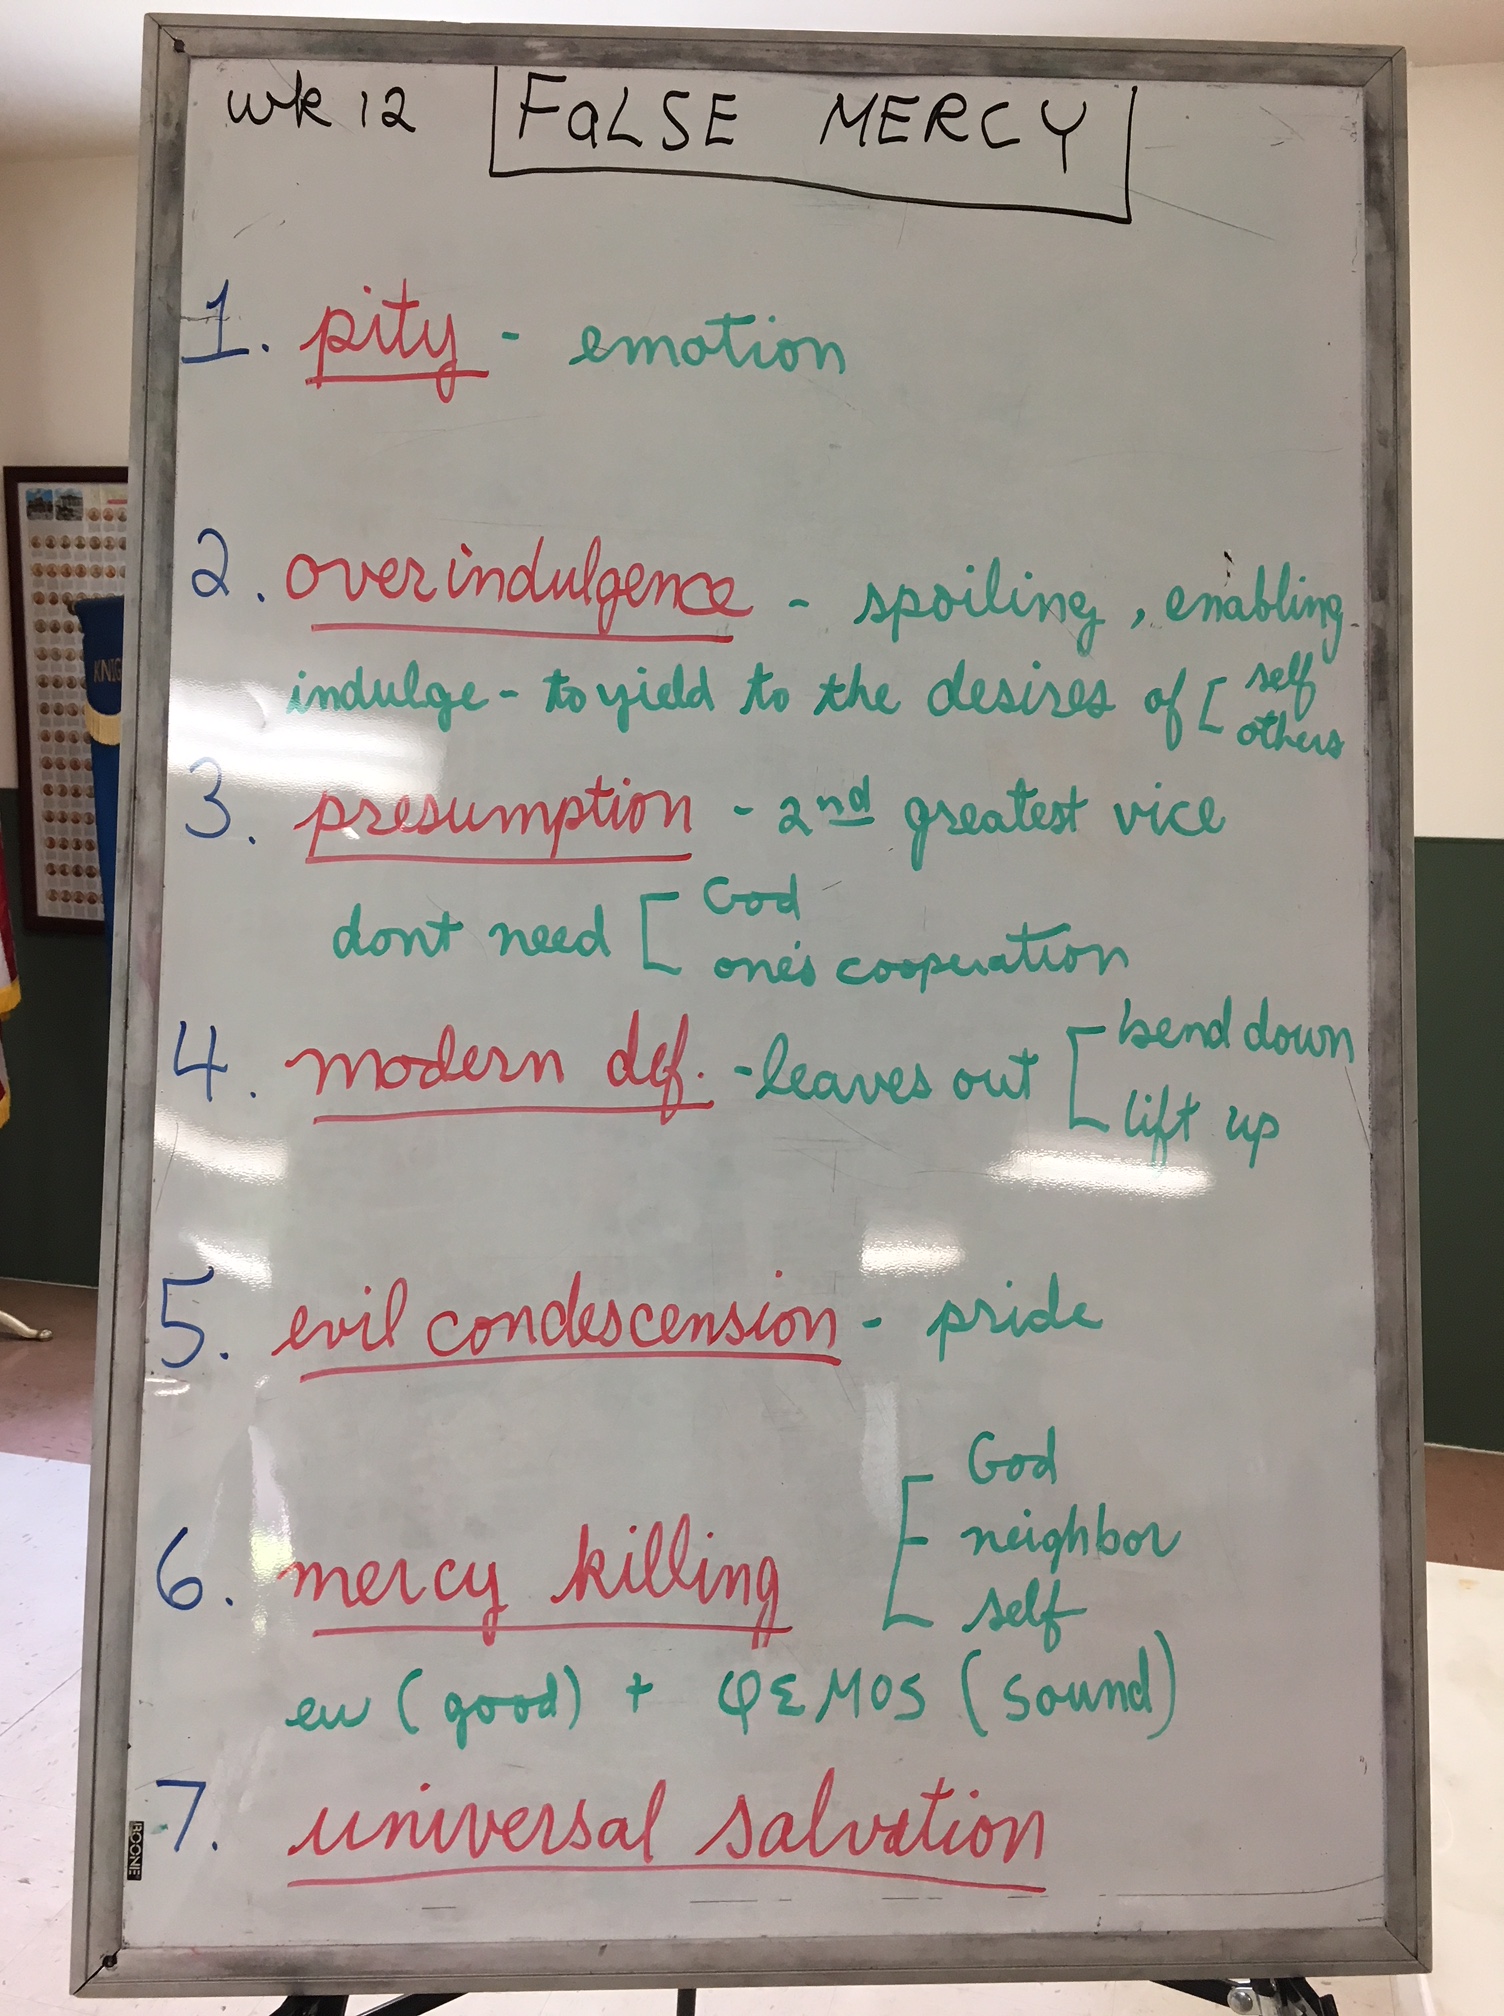 wk 12 FaLSE MERCY
1. pity - emotion
2. overindulgence - spoiling, enabling
indulge - to yield to the desires of [ self
others
3. presumption - 2nd greatest vice
dont need [ God
one's cooperation
4. modern def. - leaves out [ bend down
lift up
5. evil condescension - pride
God
6. mercy killing [ neighbor
self
eu (good) + φΕΜΟS (sound)
7. universal salvation
BOONE
KNIG